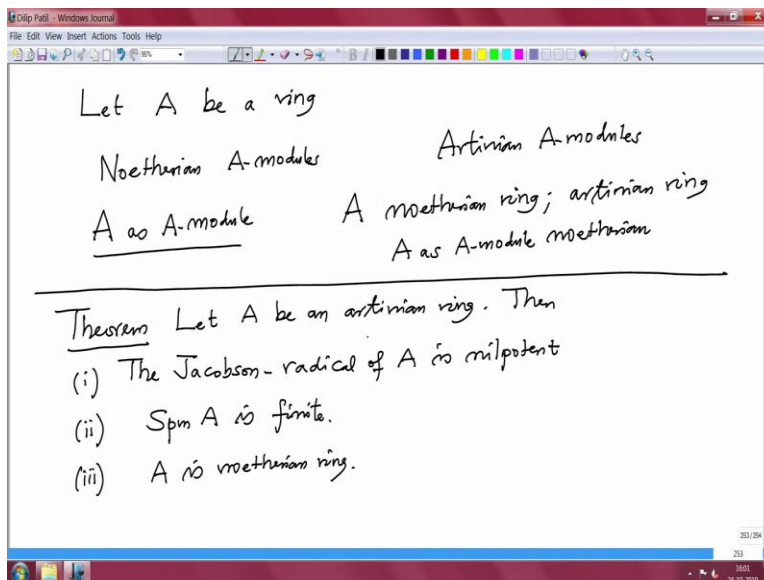 Dilip Patil - Windows Journal
File Edit View Insert Actions Tools Help
Let A be a ring
Noetherian A-modules Artinian A-modules
A as A-module A noetherian ring; artinian ring
A as A-module noetherian
Theorem Let A be an artinian ring. Then
(i) The Jacobson-radical of A is nilpotent
(ii) Spm A is finite.
(iii) A is noetherian ring.
253/254
253
16:01